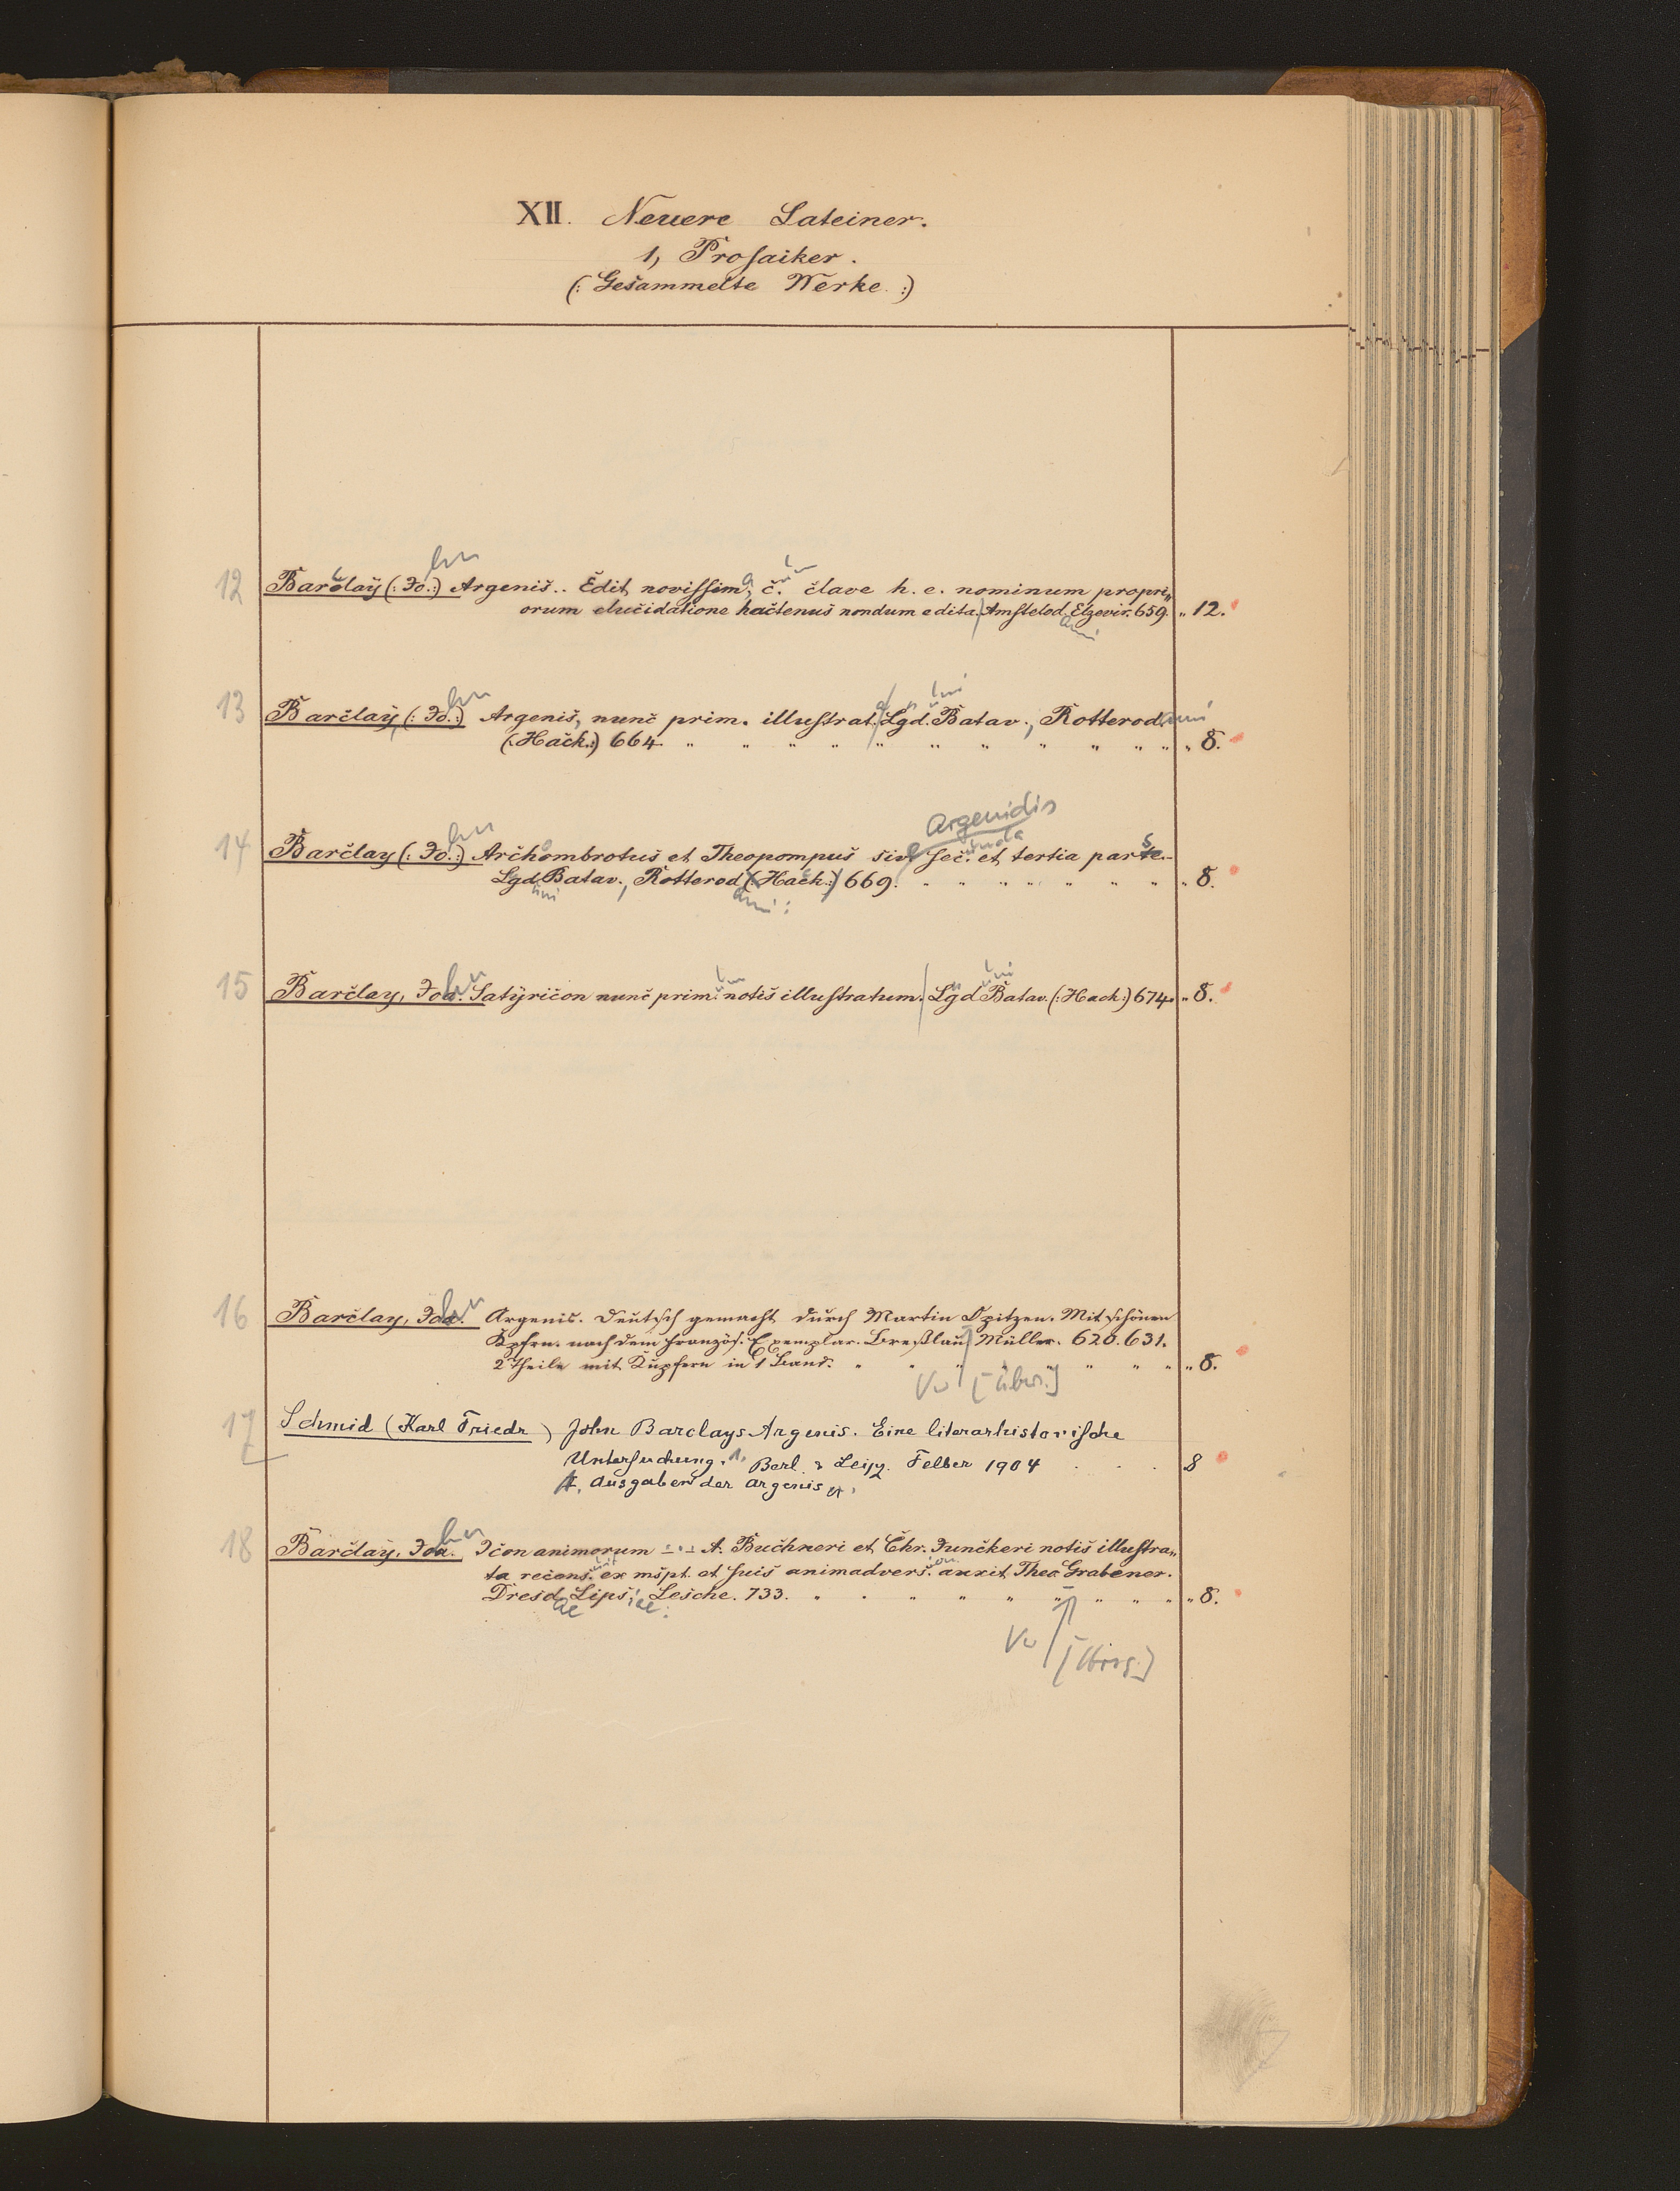 XII. Neuere Lateiner.
1, Prosaiker.
(: Gesammelte Werke :)
12 Barclay (: Jo.:) Argenis.. Edit. novissim, c. clave h. e. nominum propri„
orum elucidatione hactenus nondum edita. Amstelod. Elzevir. 659. „ 12.
13 Barclay, (: Jo.:) Argenis, nunc prim. illustrat. Lgd. Batav., Rotterod.
(: Hack.:) 664. „ 8.
Argenidis
14 Barclay (: Jo.:) Archombrotus et Theopompus sive sec. et tertia pars
Lgd. Batav., Rotterod (: Hack.:) 669. „ 8.
15 Barclay, Joa. Satyricon nunc prim. notis illustratum. Lgd. Batav. (: Hack:) 674. „ 8.
16 Barclay, Joa. Argenis. Deutsch gemacht durch Martin Opitzen. Mit schönen
Kpfrn. nach dem französ. Exemplar. Breßlau, Müller. 620. 631.
2 Theile mit Kupfern in 1 Band. „ 8.
Vw [Übers.]
17 Schmid (Karl Friedr) John Barclays Argenis. Eine literarhistorische
Untersuchung. 1. Berl. & Leipz. Felber 1904 . . . 8
Ausgaben der Argenis
18 Barclay, Joa. Icon animorum A. Buchneri et Chr. Junckeri notis illustra„
ta recens. ex mspt. et suis animadvers. auxit Theo. Grabener.
Dresd. Lips. Lesche. 733. „ 8.
Vw [Hrsg.]